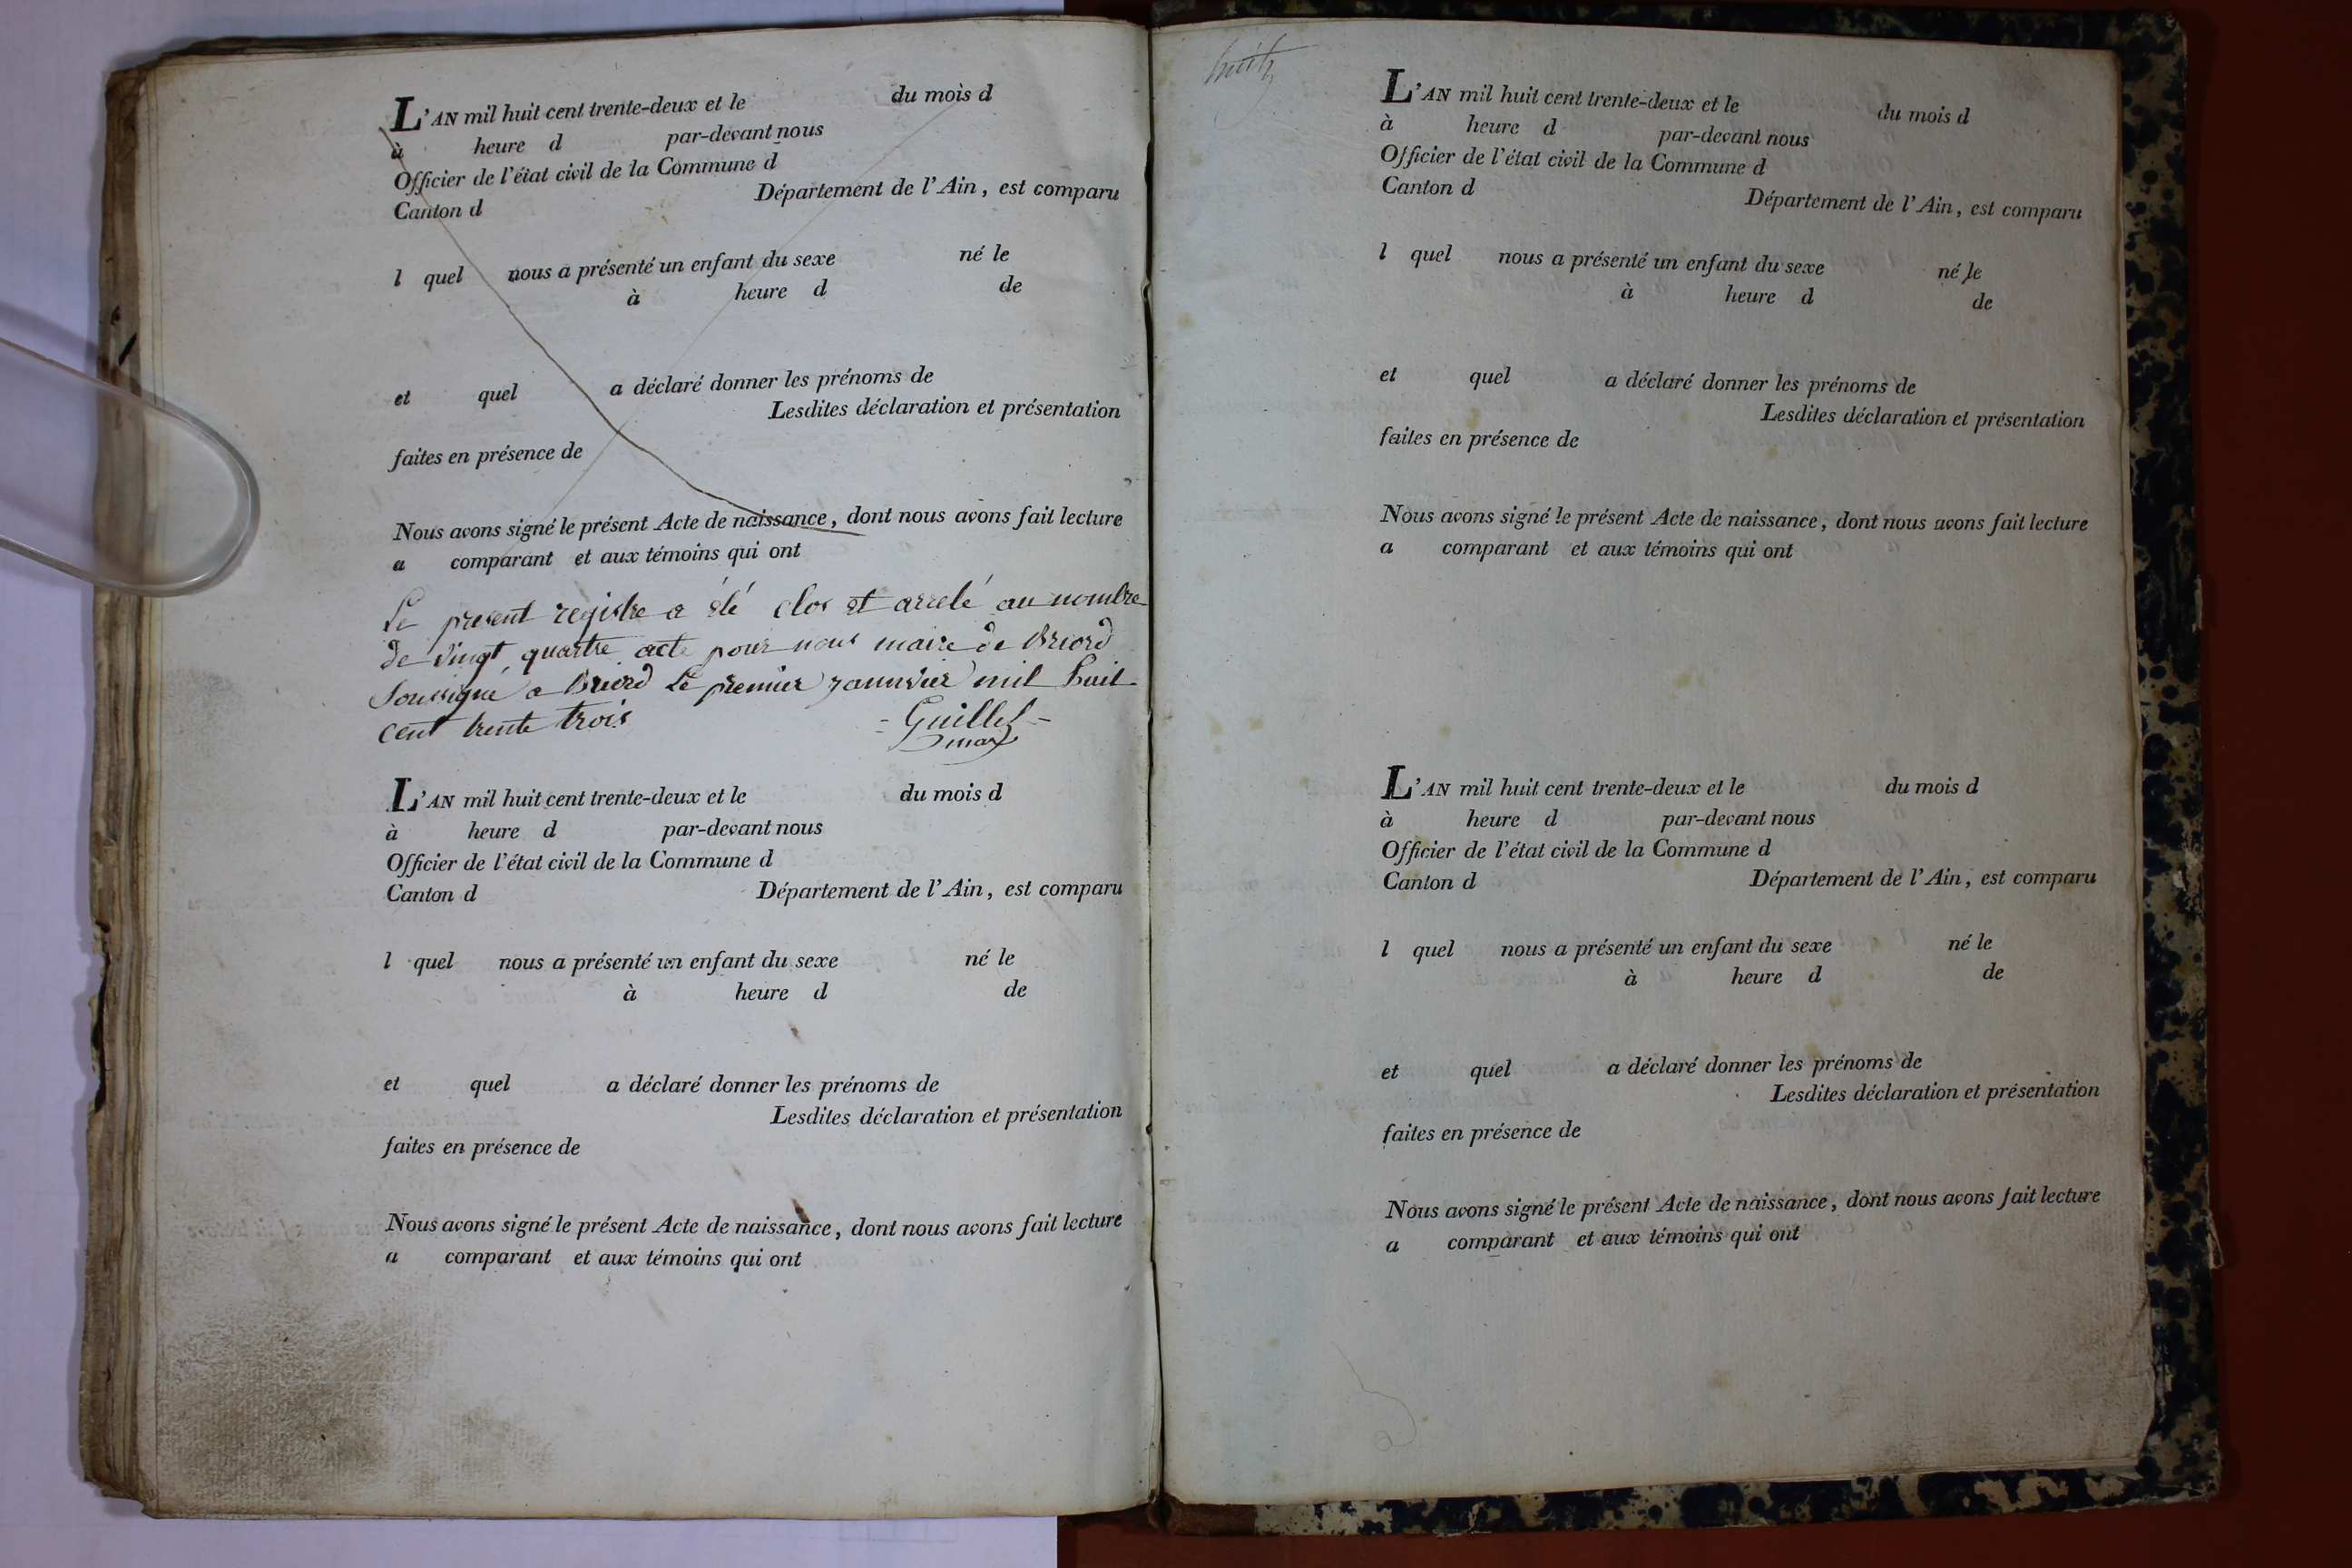 L'AN mil huit cent trente-deux et le du mois d
à heure d par-devant nous
Officier de l'état civil de la Commune d
Canton d Département de l'Ain, est comparu
l quel nous a présenté un enfant du sexe né le
à heure d de
et quel a déclaré donner les prénoms de
Lesdites déclaration et présentation
faites en présence de
Nous avons signé le présent Acte de naissance, dont nous avons fait lecture
a comparant et aux témoins qui ont
Le present registre a été clos et arrelé au nombre
de vingt quattre acte pour nous maire de Briord
Soussigné a Briord Le premier jannvier mil huit
cent trente trois - Guillet -
L'AN mil huit cent trente-deux et le du mois d
à heure d par-devant nous
Officier de l'état civil de la Commune d
Canton d Département de l'Ain, est comparu
l quel nous a présenté un enfant du sexe né le
à heure d de
et quel a déclaré donner les prénoms de
Lesdites déclaration et présentation
faites en présence de
Nous avons signé le présent Acte de naissance, dont nous avons fait lecture
a comparant et aux témoins qui ont
huit
L'AN mil huit cent trente-deux et le du mois d
à heure d par-devant nous
Officier de l'état civil de la Commune d
Canton d Département de l'Ain, est comparu
l quel nous a présenté un enfant du sexe né le
à heure d de
et quel a déclaré donner les prénoms de
Lesdites déclaration et présentation
faites en présence de
Nous avons signé le présent Acte de naissance, dont nous avons fait lecture
a comparant et aux témoins qui ont
L'AN mil huit cent trente-deux et le du mois d
à heure d par-devant nous
Officier de l'état civil de la Commune d
Canton d Département de l'Ain, est comparu
l quel nous a présenté un enfant du sexe né le
à heure d de
et quel a déclaré donner les prénoms de
Lesdites déclaration et présentation
faites en présence de
Nous avons signé le présent Acte de naissance, dont nous avons fait lecture
a comparant et aux témoins qui ont